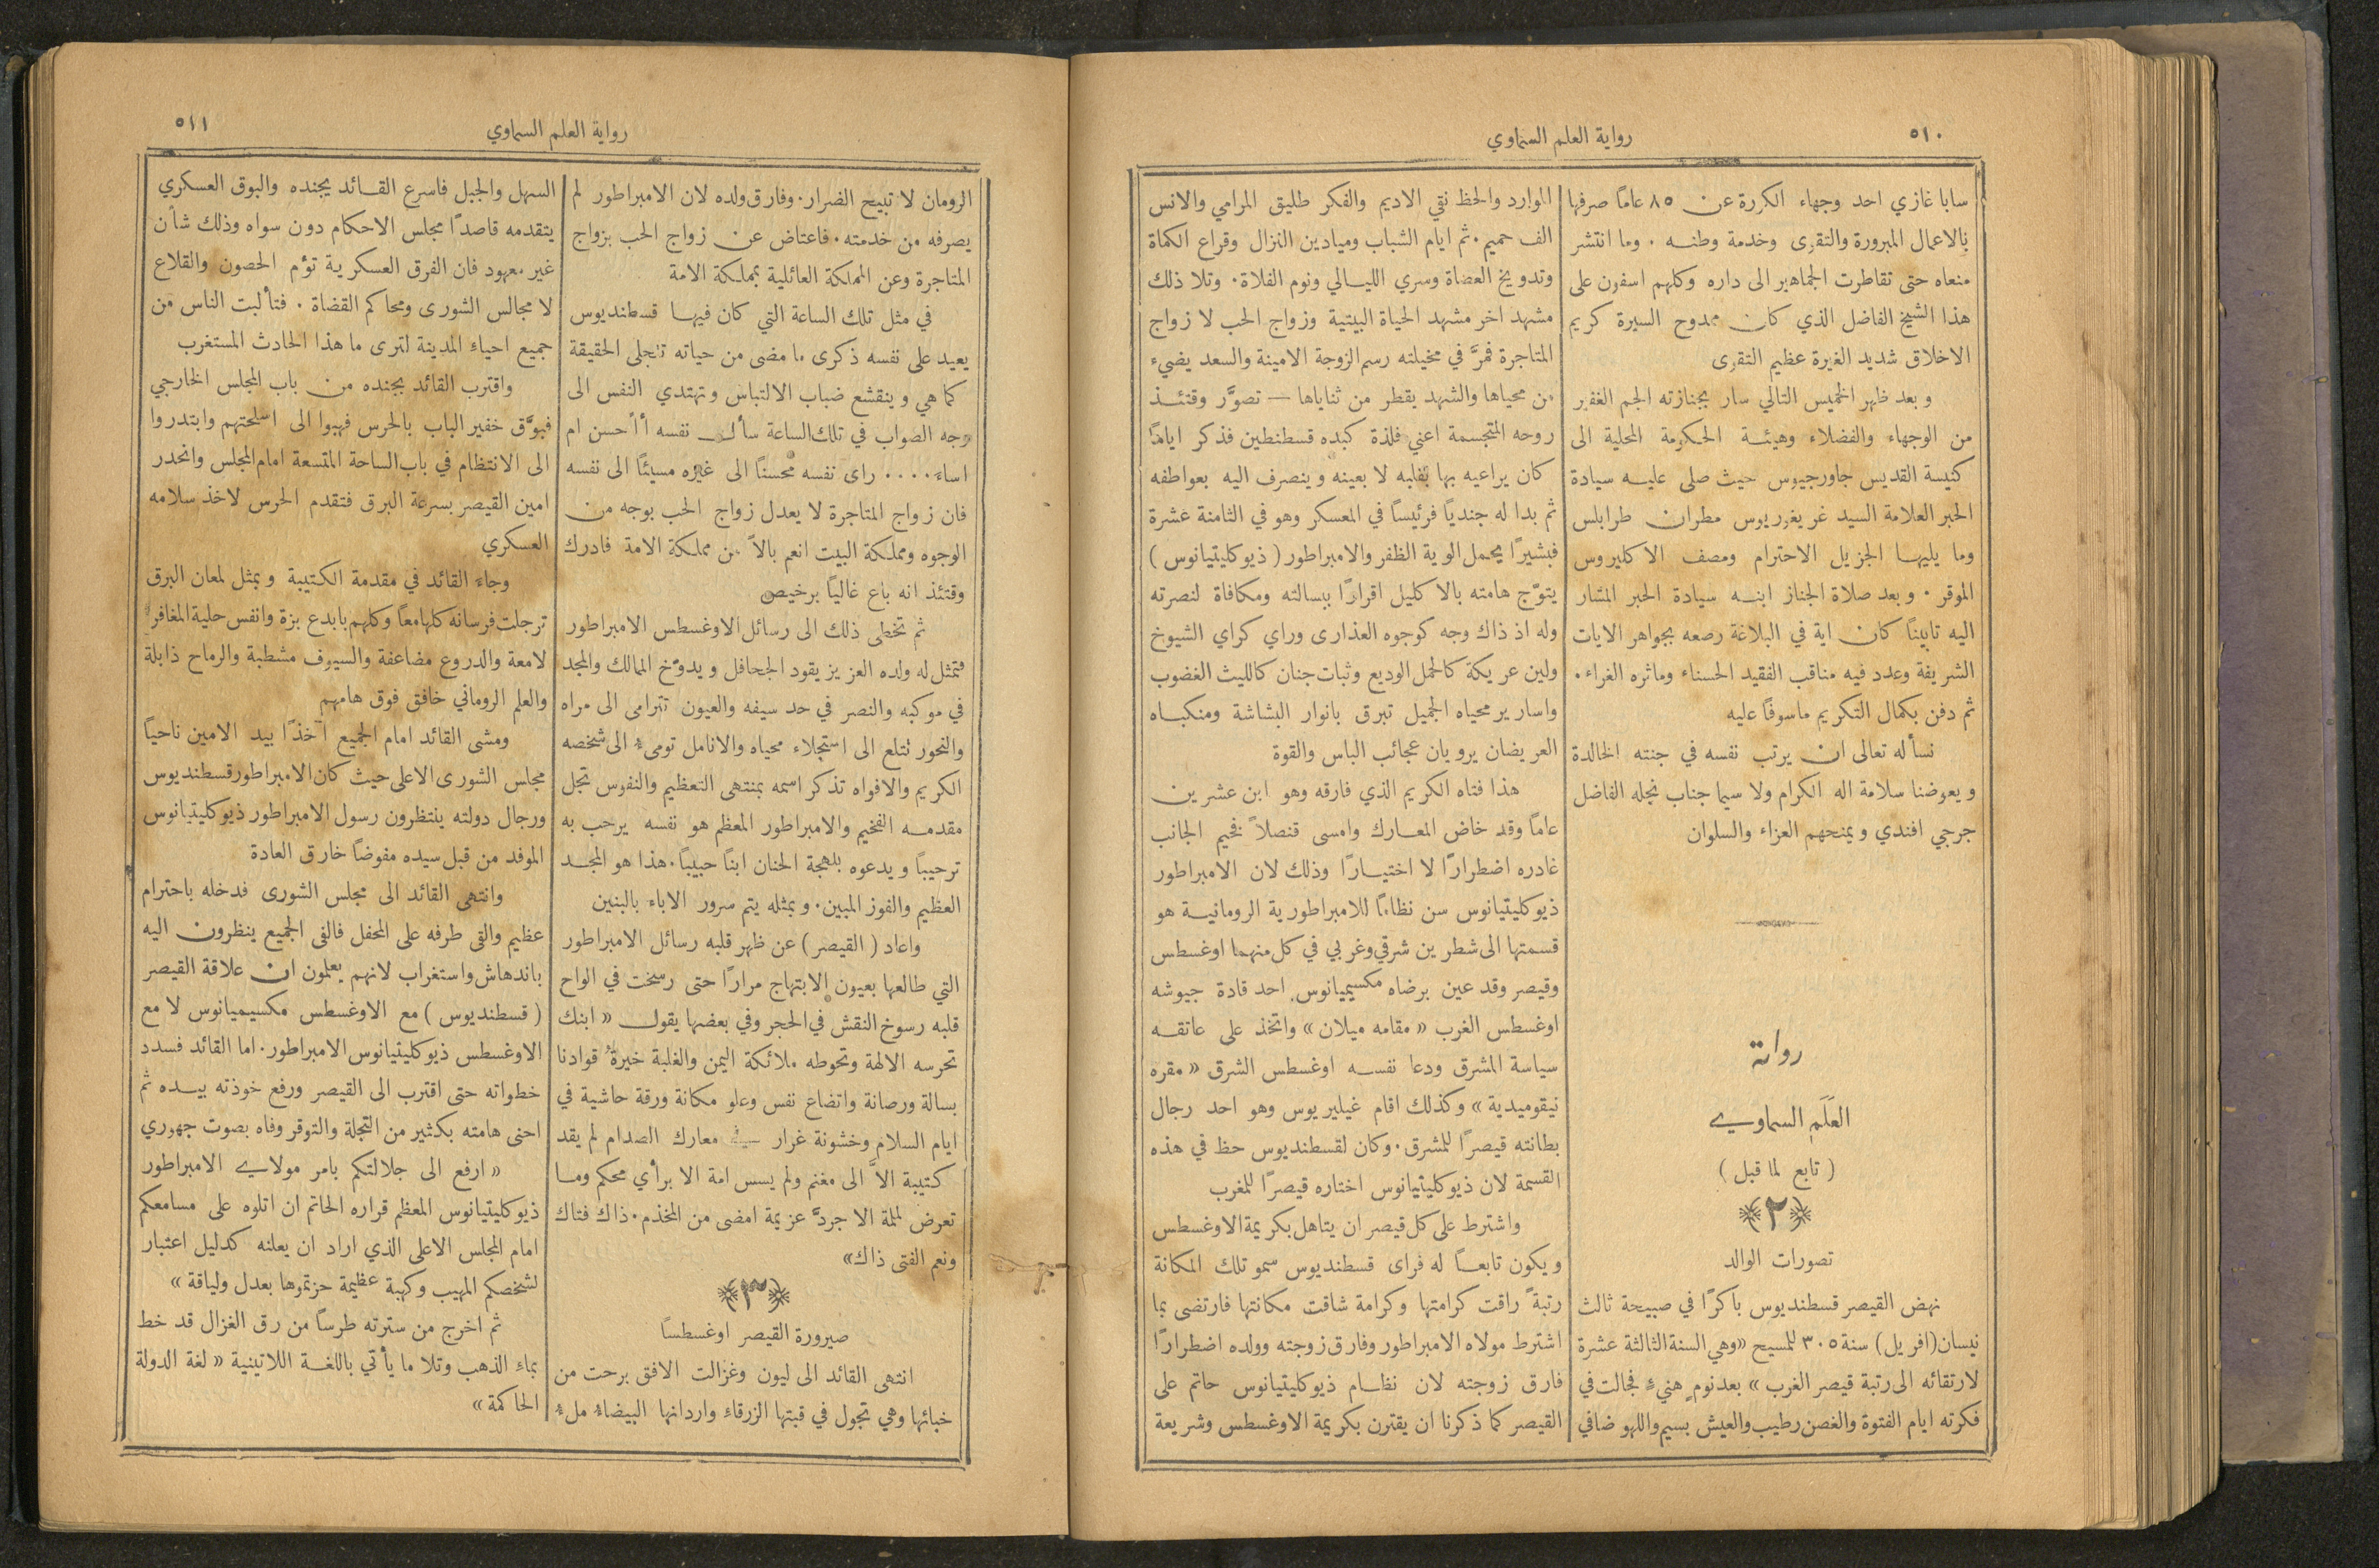 ٥١٠
رواية العلم السماوي
سابا غازي احد وجهاء الكورة عن ٨٥ عاماً صرفها
بالاعمال المبرورة والتقوى وخدمة وطنه . وما انتشر
منعاه حتى تقاطرت الجماهير الى داره وكلهم اسفون على
هذا الشيخ الفاضل الذي كان ممدوح السيرة كريم
الاخلاق شديد الغيرة عظيم التقوى
وبعد ظهر الخميس التالي سار بجنازته الجم الغفير
من الوجهاء والفضلاء وهيئة الحكومة المحلية الى
كنيسة القديس جاورجيوس حيث صلى عليه سيادة
الحبر العلامة السيد غريغوريوس مطران طرابلس
وما يليها الجزيل الاحترام ومصف الاكليروس
الموقر . وبعد صلاة الجناز ابنه سيادة الحبر المشار
اليه تابيناً كان اية في البلاغة رصعه بجواهر الايات
الشريفة وعدد فيه مناقب الفقيد الحسناء وماثره الغراء .
ثم دفن بكمال التكريم ماسوفاً عليه
نسأله تعالى ان يرتب نفسه في جنته الخالدة
ويعوضنا سلامة اله الكرام ولا سيما جناب نجله الفاضل
جرجي افندي ويمنحهم العزاء والسلوان
رواية
العَلَم السماوي
( تابع لما قبل )
﴿٢﴾
تصورات الوالد
نهض القيصر قسطنديوس باكراً في صبيحة ثالث
نيسان (افريل) سنة ٣٠٥ للمسيح «وهي السنة الثالثة عشرة
لارتقائه الى رتبة قيصر الغرب» بعد نوم هنيءٍ فجالت في
فكرته ايام الفتوة والغصن رطيب والعيش بسيم واللهو ضافي
الموارد والحظ نقي الاديم والفكر طليق المرامي والانس
الف حميم . ثم ايام الشباب وميادين النزال وقراع الكماة
وتدويخ العصاة وسري الليالي ونوم الفلاة . وتلا ذلك
مشهد اخر مشهد الحياة البيتية وزواج الحب لا زواج
المتاجرة فمرَّ في مخيلته رسم الزوجة الامينة والسعد يضيء
من محياها والشهد يقطر من ثناياها — تصوَّر وقتئذ
روحه المتجسمة اعني فلذة كبده قسطنطين فذكر اياماً
كان يراعيه بها بقلبه لا بعينه وينصرف اليه بعواطفه
ثم بدا له جندياً فرئيساً في المعسكر وهو في الثامنة عشرة
فبشيراً يحمل الوية الظفر والامبراطور (ذيوكليتيانوس)
يتوّج هامته بالاكليل اقراراً ببسالته ومكافاة لنصرته
وله اذ ذاك وجه كوجوه العذارى وراي كراي الشيوخ
ولين عريكة كالحمل الوديع وثبات جنان كالليث الغضوب
واسارير محياه الجميل تبرق بانوار البشاشة ومنكباه
العريضان يرويان عجائب الباس والقوة
هذا فتاه الكريم الذي فارقه وهو ابن عشرين
عاماً وقد خاض المعارك وامسى قنصلاً فخيم الجانب
غادره اضطراراً لا اختياراً وذلك لان الامبراطور
ذيوكليتيانوس سن نظاماً للامبراطورية الرومانية هو
قسمتها الى شطرين شرقي وغربي في كل منهما اوغسطس
وقيصر وقد عين برضاه مكسيميانوس احد قادة جيوشه
اوغسطس الغرب «مقامه ميلان» واتخذ على عاتقه
سياسة المشرق ودعا نفسه اوغسطس الشرق «مقره
نيقوميدية» وكذلك اقام غيليريوس وهو احد رجال
بطانته قيصراً للمشرق . وكان لقسطنديوس حظ في هذه
القسمة لان ذيوكليتيانوس اختاره قيصراً للمغرب
واشترط على كل قيصر ان يتاهل بكريمة الاوغسطس
ويكون تابعاً له فراى قسطنديوس سمو تلك المكانة
رتبةً راقت كرامتها وكرامة شاقت مكانتها فارتضى بما
اشترط مولاه الامبراطور وفارق زوجته وولده اضطراراً
فارق زوجته لان نظام ذيوكليتيانوس حاتم على
القيصر كما ذكرنا ان يقترن بكريمة الاوغسطس وشريعة
رواية العلم السماوي
٥١١
الرومان لا تبيح الضرار . وفارق ولده لان الامبراطور لم
يصرفه من خدمته . فاعتاض عن زواج الحب بزواج
المتاجرة وعن المملكة العائلية بمملكة الامة
في مثل تلك الساعة التي كان فيها قسطنديوس
يعيد على نفسه ذكرى ما مضى من حياته تنجلى الحقيقة
كما هي وينقشع ضباب الالتباس وتهتدي النفس الى
وجه الصواب في تلك الساعة سأل نفسه أأحسن ام
اساء .... راى نفسه محسناً الى غيره مسيئاً الى نفسه
فان زواج المتاجرة لا يعدل زواج الحب بوجه من
الوجوه ومملكة البيت انعم بالاً من مملكة الامة فادرك
وقتئذ انه باع غالياً برخيص
ثم تخطى ذلك الى رسائل الاوغسطس الامبراطور
فتمثل له ولده العزيز يقود الجحافل ويدوّخ الممالك والمجد
في موكبه والنصر في حد سيفه والعيون تترامى الى مراه
والنحور تتلع الى استجلاء محياه والانامل تومىء الى شخصه
الكريم والافواه تذكر اسمه بمنتهى التعظيم والنفوس تجل
مقدمه الفخيم والامبراطور المعظم هو نفسه يرحب به
ترحيباً ويدعوه بلهجة الحنان ابناً حبيباً . هذا هو المجد
العظيم والفوز المبين . وبمثله يتم سرور الاباء بالبنين
واعاد (القيصر) عن ظهر قلبه رسائل الامبراطور
التي طالعها بعيون الابتهاج مراراً حتى رسخت في الواح
قلبه رسوخ النقش في الحجر وفي بعضها يقول «ابنك
تحرسه الالهة وتحوطه ملائكة اليمن والغلبة خيرة قوادنا
بسالة ورصانة واتضاع نفس وعلو مكانة ورقة حاشية في
ايام السلام وخشونة غرار في معارك الصدام لم يقد
كتيبة الاَّ الى مغنم ولم يسس امة الا برأي محكم وما
تعرض لملمة الا جردَّ عزيمة امضى من المخذم . ذاك فتاك
ونعم الفتى ذاك»
﴿٣﴾
صيرورة القيصر اوغسطساً
انتهى القائد الى ليون وغزالت الافق برحت من
خبائها وهي تجول في قبتها الزرقاء واردانها البيضاء ملء
السهل والجبل فاسرع القائد بجنده والبوق العسكري
يتقدمه قاصداً مجلس الاحكام دون سواه وذلك شأن
غير معهود فان الفرق العسكرية تؤم الحصون والقلاع
لا مجالس الشورى ومحاكم القضاة . فتألبت الناس من
جميع احياء المدينة لترى ما هذا الحادث المستغرب
واقترب القائد بجنده من باب المجلس الخارجي
فبوَّق خفير الباب بالحرس فهبوا الى اسلحتهم وابتدروا
الى الانتظام في باب الساحة المتسعة امام المجلس وانحدر
امين القيصر بسرعة البرق فتقدم الحرس لاخذ سلامه
العسكري
وجاء القائد في مقدمة الكتيبة وبمثل لمعان البرق
ترجلت فرسانه كلها معاً وكلهم بابدع بزة وانفس حلية المغافر
لامعة والدروع مضاعفة والسيوف مشطبة والرماح ذابلة
والعلم الروماني خافق فوق هامهم
ومشى القائد امام الجميع آخذاً بيد الامين ناحياً
مجلس الشورى الاعلى حيث كان الامبراطور قسطنديوس
ورجال دولته ينتظرون رسول الامبراطور ذيوكليتيانوس
الموفد من قبل سيده مفوضاً خارق العادة
وانتهى القائد الى مجلس الشورى فدخله باحترام
عظيم والقى طرفه على المحفل فالفى الجميع ينظرون اليه
باندهاش واستغراب لانهم يعلمون ان علاقة القيصر
(قسطنديوس) مع الاوغسطس مكسيميانوس لا مع
الاوغسطس ذيوكليتيانوس الامبراطور . اما القائد فسدد
خطواته حتى اقترب الى القيصر ورفع خوذته بيده ثم
احنى هامته بكثير من التجلة والتوقر وفاه بصوت جهوري
«ارفع الى جلالتكم بامر مولاي الامبراطور
ذيوكليتيانوس المعظم قراره الحاتم ان اتلوه على مسامعكم
امام المجلس الاعلى الذي اراد ان يعلنه كدليل اعتبار
لشخصكم المهيب وكهبة عظيمة حزتموها بعدل ولياقة»
ثم اخرج من سترته طرساً من رق الغزال قد خط
بماء الذهب وتلا ما يأتي باللغة اللاتينية «لغة الدولة
الحاكمة»